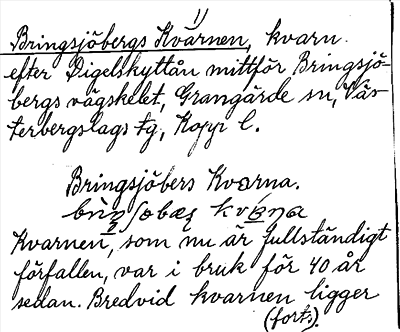 1)
Bringsjöbergs Kvarnen, kvarn
efter Digelskyttån mittför Bringsjö-
bergs vägskelet, Grangärde sn, Väs
terbergslags tg, Kopp l.
Bringsjöbers Kvarna.
Kvarnen, som nu är fullständigt
förfallen, var i bruk för 40 år
sedan. Bredvid kvarnen ligger
(forts.)